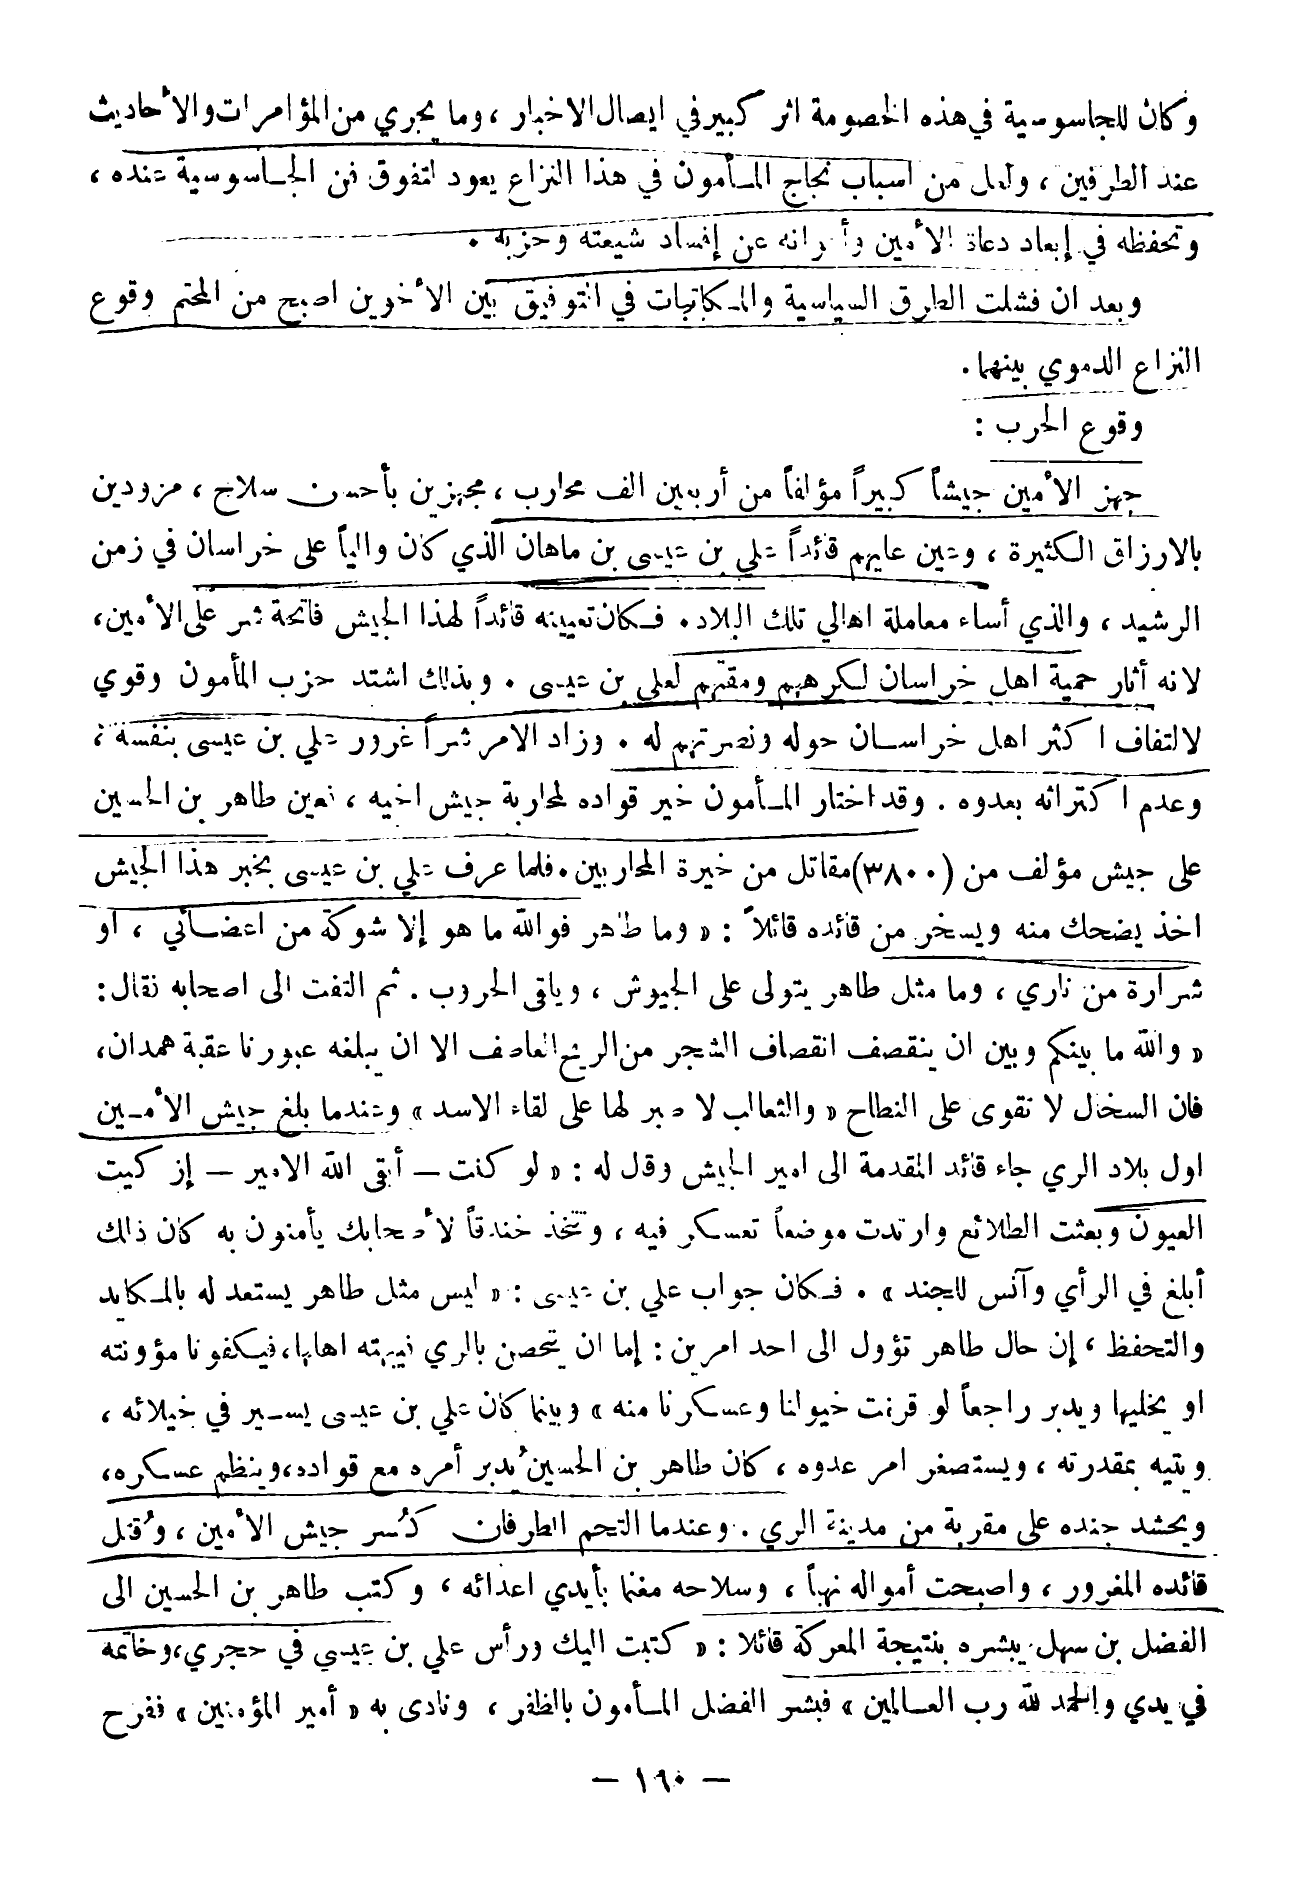 وكان للجاسوسية في هذه الخصومة اثر كبير في ايصال الاخبار ، وما يجري من المؤامرات والأحاديث
عند الطرفين ، ولعل من اسباب نجاح المأمون في هذا النزاع يعود لتفوق فن الجاسوسية عنده ،
وتحفظه في إبعاد دعاة الأمين وأعوانه عن إفساد شيعته وحزبه .
وبعد ان فشلت الطرق السياسية والمكاتبات في التوفيق بين الأخوين اصبح من المحتم وقوع
النزاع الدموي بينهما .
وقوع الحرب :
جهز الأمين جيشاً كبيراً مؤلفاً من أربعين الف محارب ، مجهزين بأحسن سلاح ، مزودين
بالارزاق الكثيرة ، وعين عليهم قائداً علي بن عيسى بن ماهان الذي كان والياً على خراسان في زمن
الرشيد ، والذي أساء معاملة اهالي تلك البلاد . فكان تعيينه قائداً لهذا الجيش فاتحة شر على الأمين ،
لانه أثار حمية اهل خراسان لكرههم ومقتهم لعلي بن عيسى . وبذلك اشتد حزب المأمون وقوي
لالتفاف اكثر اهل خراسان حوله ونصرتهم له . وزاد الامر شراً غرور علي بن عيسى بنفسه ،
وعدم اكتراثه بعدوه . وقد اختار المأمون خير قواده لمحاربة جيش اخيه ، فعين طاهر بن الحسين
على جيش مؤلف من (٣٨٠٠) مقاتل من خيرة المحاربين . فلما عرف علي بن عيسى بخبر هذا الجيش
اخذ يضحك منه ويسخر من قائده قائلاً : « وما طاهر فوالله ما هو إلا شوكة من اعضائي ، او
شرارة من ناري ، وما مثل طاهر يتولى على الجيوش ، ويلقى الحروب . ثم التفت الى اصحابه فقال :
« والله ما بينكم وبين ان ينقصف انقصاف الشجر من الريح العاصف الا ان يبلغه عبورنا عقبة همدان ،
فان السخال لا تقوى على النطاح « والثعالب لا صبر لها على لقاء الاسد » وعندما بلغ جيش الأمين
اول بلاد الري جاء قائد المقدمة الى امير الجيش وقال له : « لو كنت — أبقى الله الامير — إز كيت
العيون وبعثت الطلائع وارتدت موضعاً تعسكر فيه ، وتتخذ خندقاً لأصحابك يأمنون به كان ذلك
أبلغ في الرأي وآنس للجند » . فكان جواب علي بن عيسى : « ليس مثل طاهر يستعد له بالمكايد
والتحفظ ، إن حال طاهر تؤول الى احد امرين : إما ان يتحصن بالري فيبهته اهلها ، فيكفونا مؤونته
او يخليها ويدبر راجعاً لو قربت خيولنا وعسكرنا منه » وبينما كان علي بن عيسى يسير في خيلائه ،
ويتيه بمقدرته ، ويستصغر امر عدوه ، كان طاهر بن الحسين يُدبر أمره مع قواده ، وينظم عسكره ،
ويحشد جنده على مقربة من مدينة الري . وعندما التحم الطرفان كُسر جيش الأمين ، وقُتل
قائده المغرور ، واصبحت أمواله نهباً ، وسلاحه مغنما بأيدي اعدائه ، وكتب طاهر بن الحسين الى
الفضل بن سهل يبشره بنتيجة المعركة قائلا : « كتبت اليك ورأس علي بن عيسى في حجري ، وخاتمه
في يدي والحمد لله رب العالمين » فبشر الفضل المأمون بالظفر ، ونادى به « أمير المؤمنين » ففرح
— ١٦٠ —